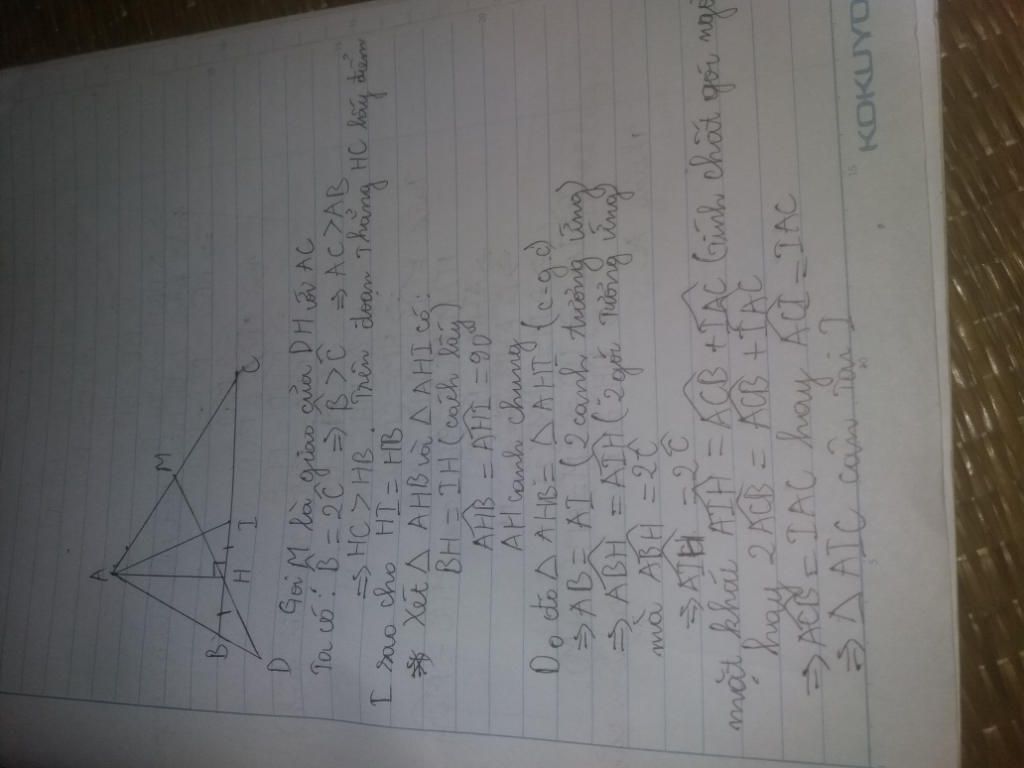 A
M
B
H
I
C
D
Gọi M là giao của DH với AC
Ta có: B̂ = 2Ĉ ⇒ B̂ > Ĉ ⇒ AC > AB
⇒ HC > HB. Trên đoạn thẳng HC lấy điểm
I sao cho HI = HB
* Xét △ AHB và △ AHI có:
BH = IH (cách lấy)
AHB = AHI = 90
AH cạnh chung
Do đó △ AHB = △ AHI (c.g.c)
⇒ AB = AI (2 cạnh tương ứng)
⇒ ABH = AIH (2 góc tương ứng)
mà ABH = 2Ĉ
⇒ AIH = 2Ĉ
mặt khác AIH = ACB + IAC (tính chất góc
hay 2ACB = ACB + IAC
⇒ ACB = IAC hay ACI = IAC
⇒ △ AIC cân tại I
KOKUYO